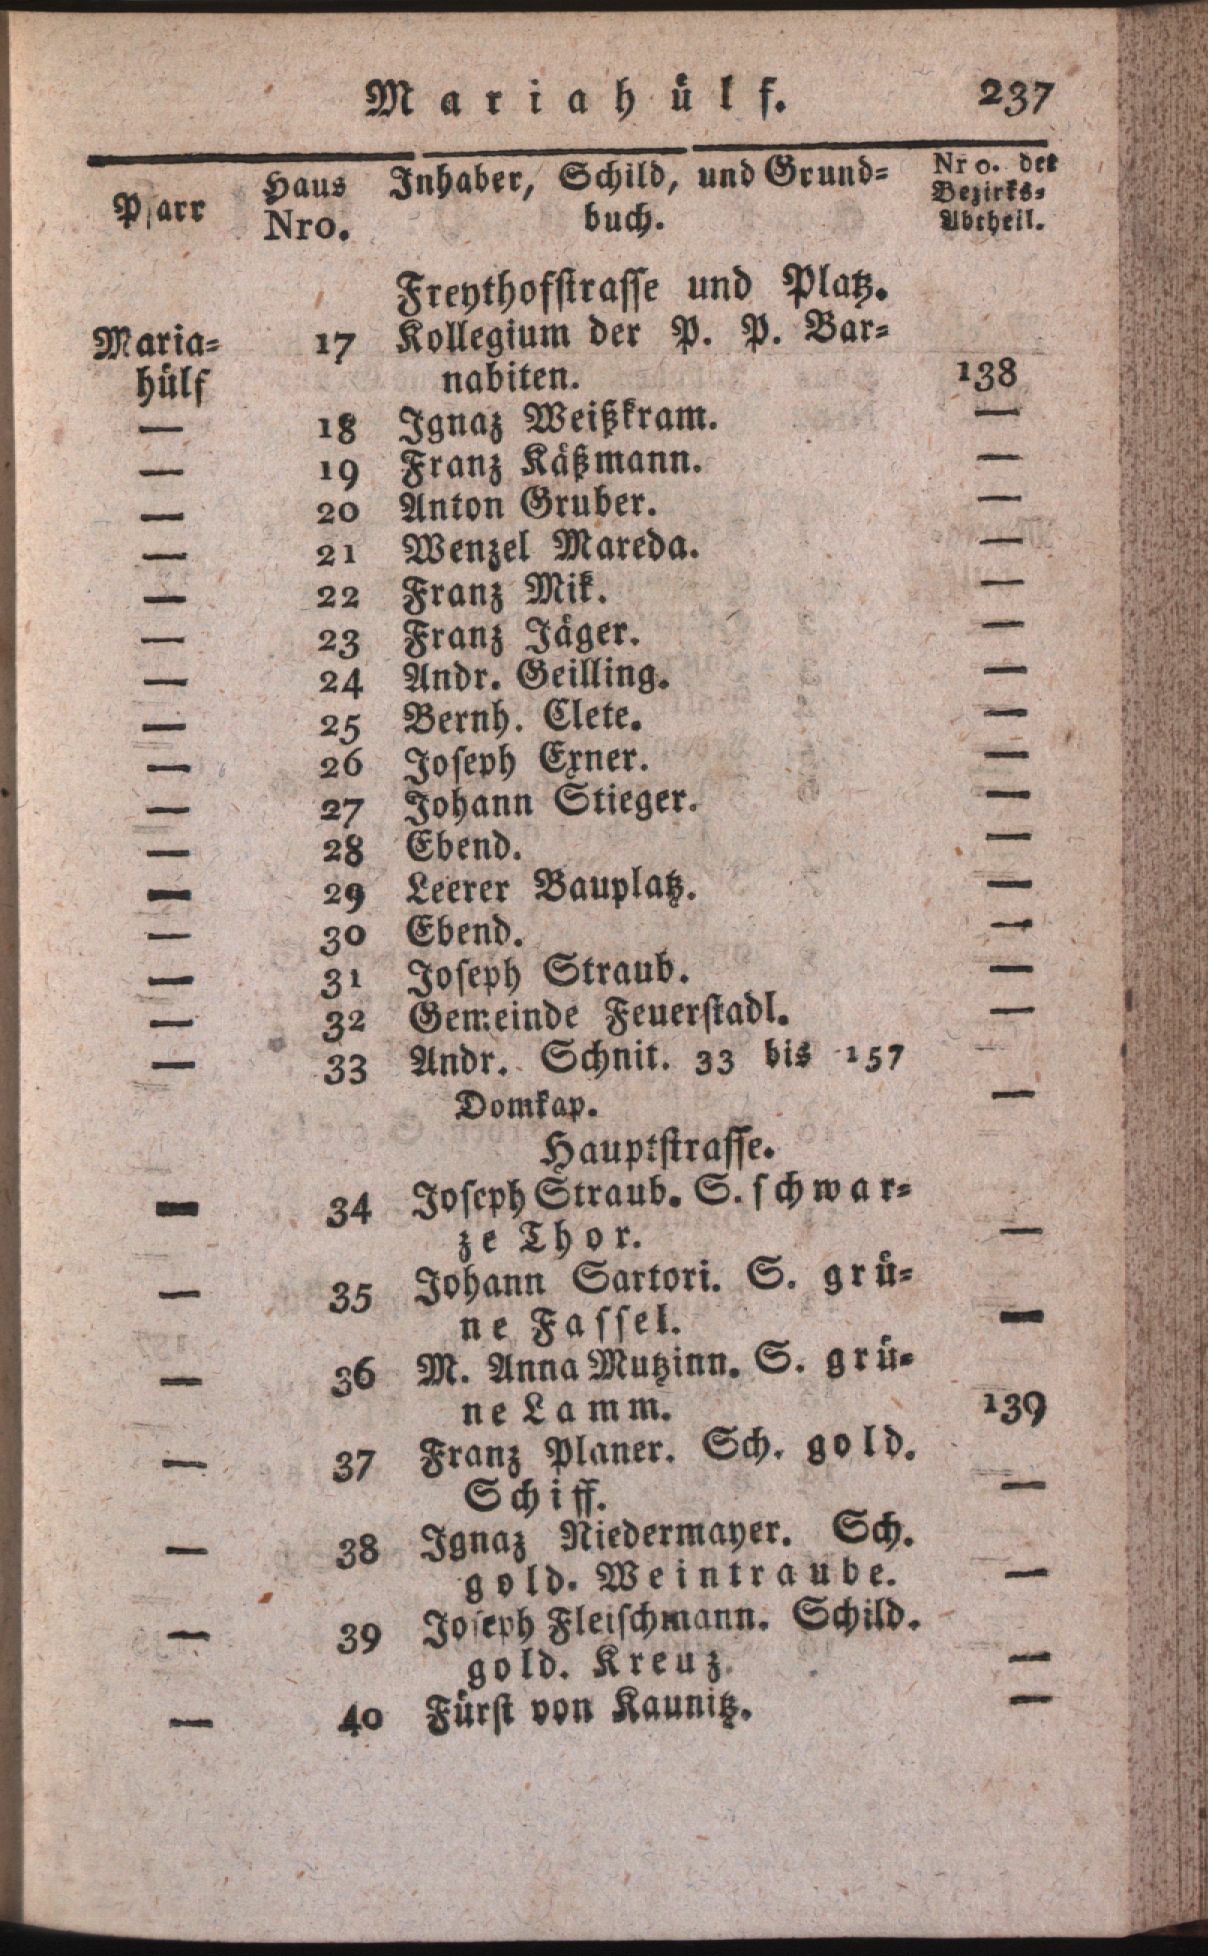 Mariahülf. 237
Pfarr Haus Nro. Inhaber, Schild, und Grund= buch. Nro. der Bezirks= Abtheil.
Freythofstrasse und Platz.
Maria= 17 Kollegium der P. P. Bar=
hülf nabiten. 138
— 18 Ignaz Weißkram. —
— 19 Franz Käßmann. —
— 20 Anton Gruber. —
— 21 Wenzel Mareda. —
— 22 Franz Mik. —
— 23 Franz Jäger. —
— 24 Andr. Geilling. —
— 25 Bernh. Clete. —
— 26 Joseph Exner. —
— 27 Johann Stieger. —
— 28 Ebend. —
— 29 Leerer Bauplatz. —
— 30 Ebend. —
— 31 Joseph Straub. —
— 32 Gemeinde Feuerstadl. —
— 33 Andr. Schnit. 33 bis 157
Domkap. —
Hauptstrasse.
— 34 Joseph Straub. S. schwar=
ze Thor. —
— 35 Johann Sartori. S. grü=
ne Fassel. —
— 36 M. Anna Mutzinn. S. grü=
ne Lamm. 139
— 37 Franz Planer. Sch. gold.
Schiff. —
— 38 Ignaz Niedermayer. Sch.
gold. Weintraube. —
— 39 Joseph Fleischmann. Schild.
gold. Kreuz. —
— 40 Fürst von Kaunitz. —